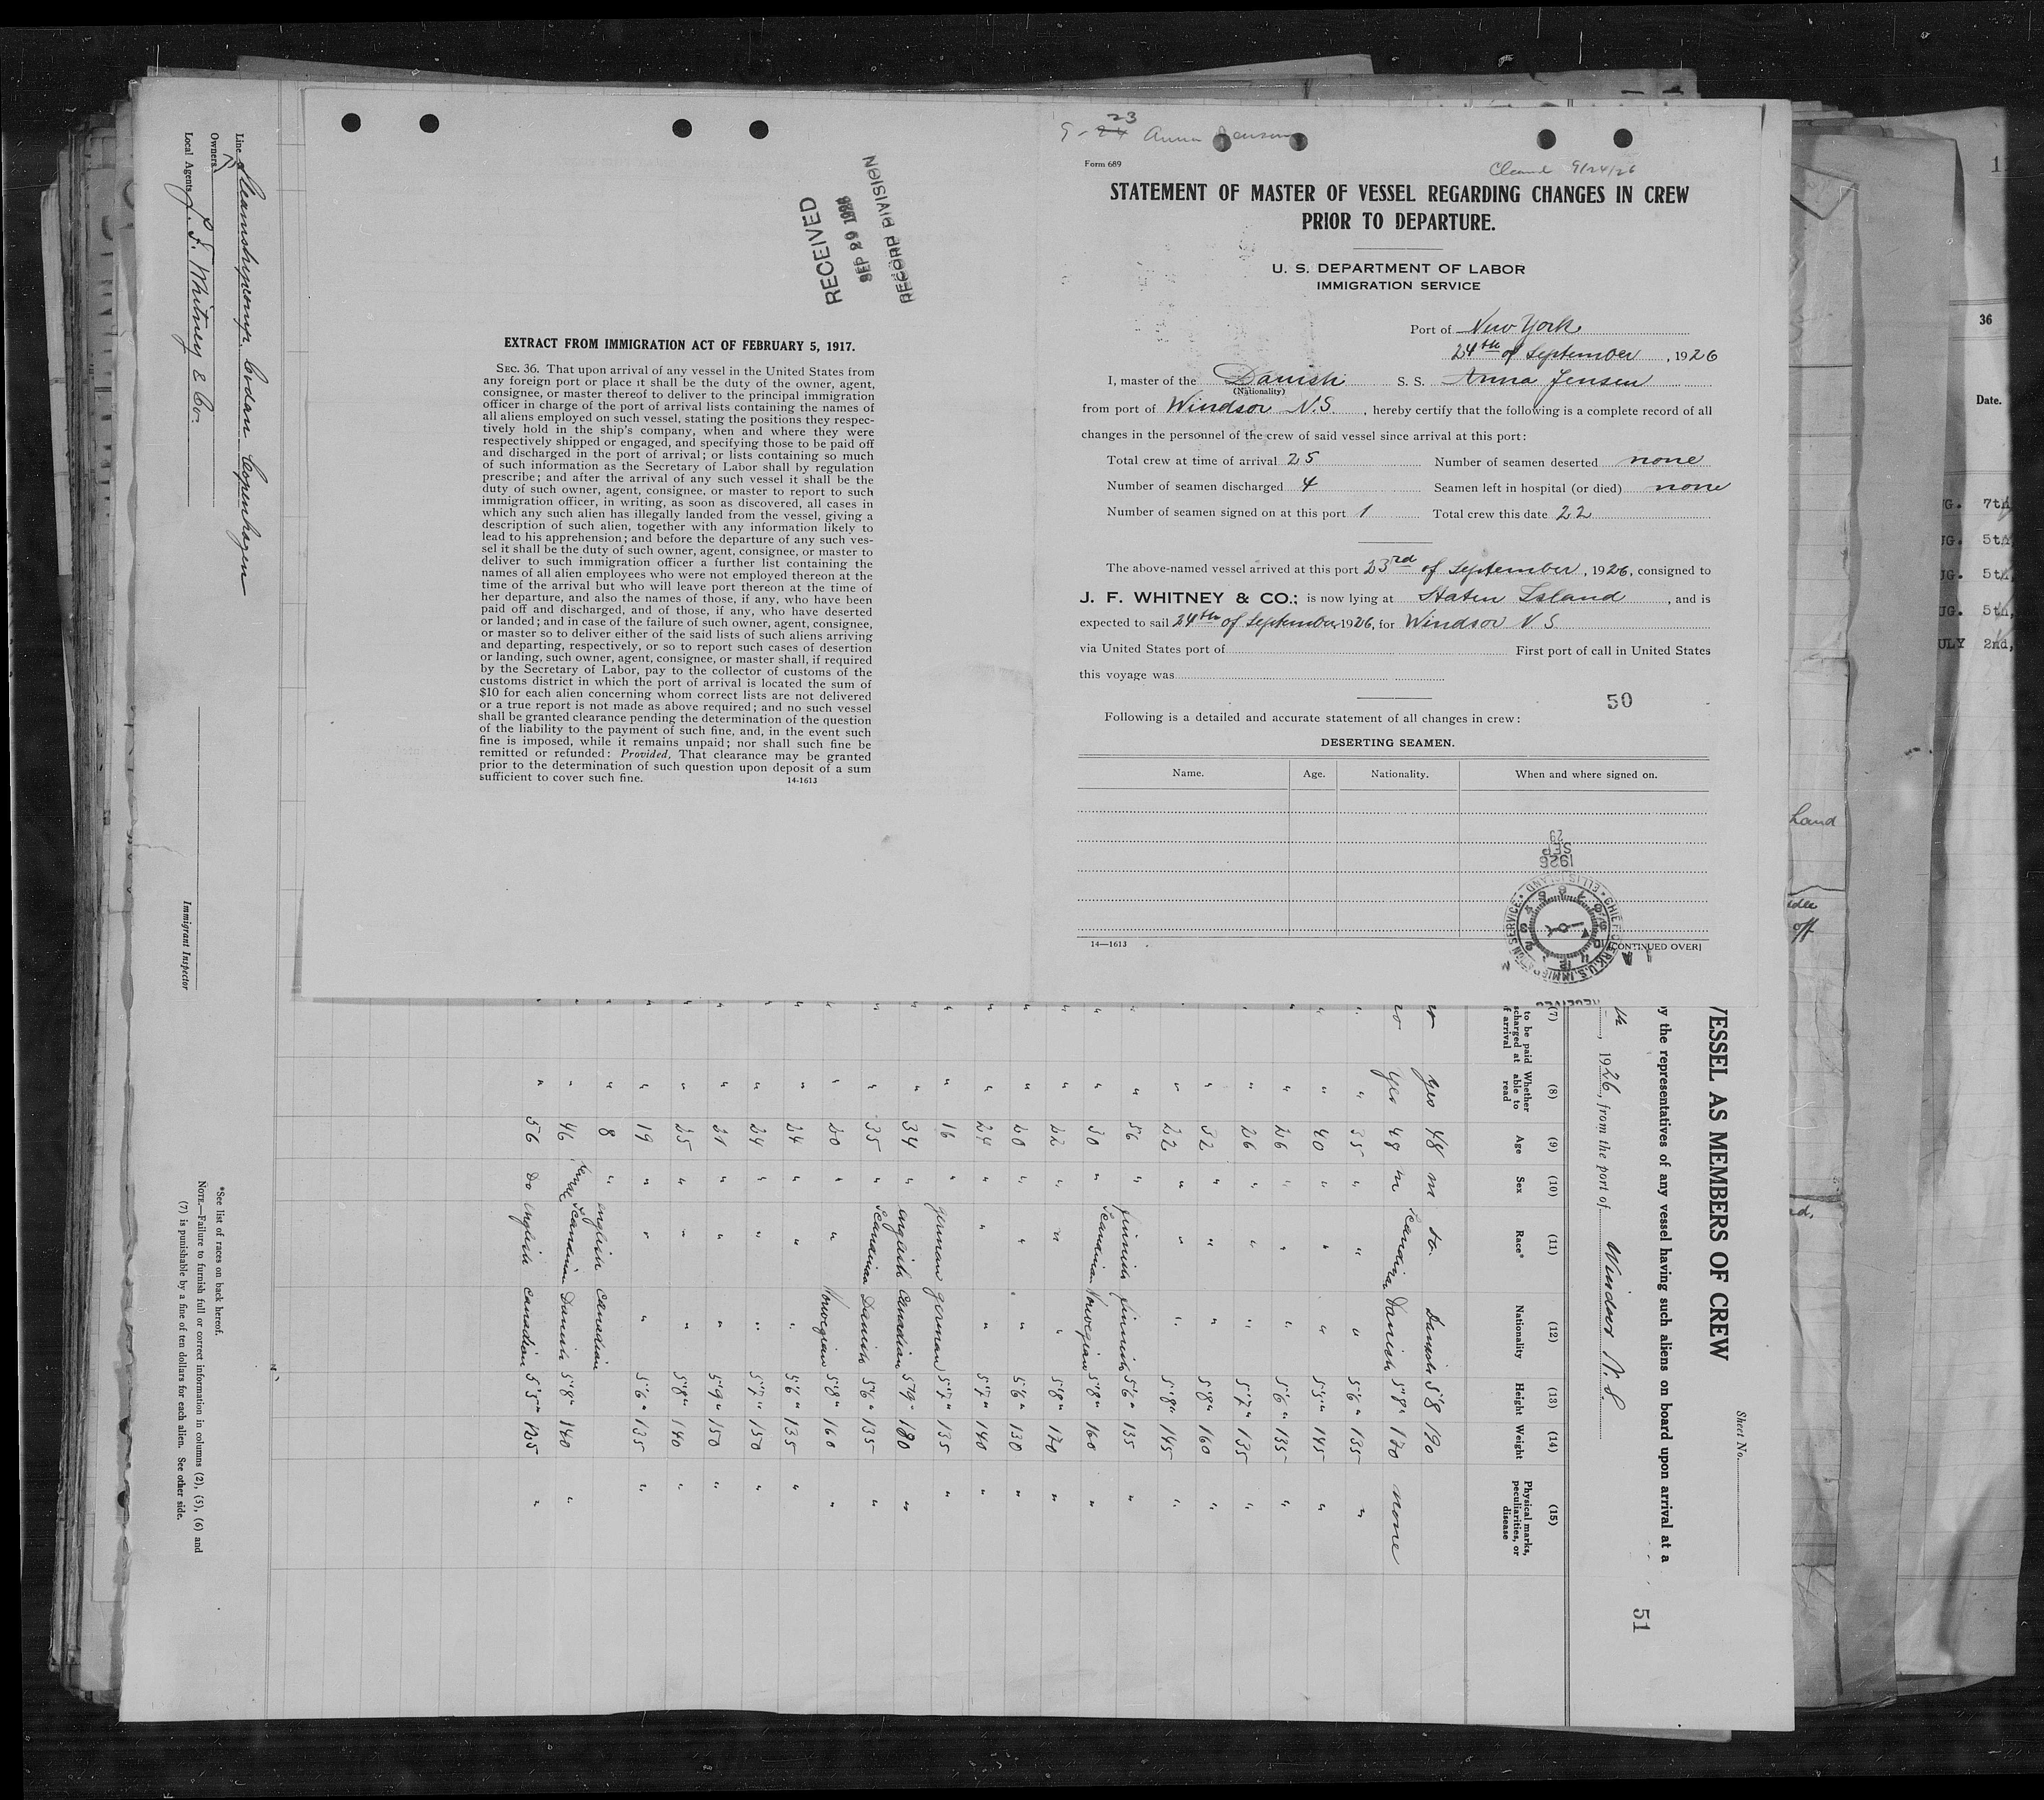 9-24 23 Anna Jensen
Form 689
Cleared 9/24/26
STATEMENT OF MASTER OF VESSEL REGARDING CHANGES IN CREW
PRIOR TO DEPARTURE.
U. S. DEPARTMENT OF LABOR
IMMIGRATION SERVICE
Port of New York
24th of September, 1926
I, master of the Danish S. S. Anna Jensen
(Nationality)
from port of Windsor N.S., hereby certify that the following is a complete record of all
changes in the personnel of the crew of said vessel since arrival at this port:
Total crew at time of arrival 25 Number of seamen deserted none
Number of seamen discharged 4 Seamen left in hospital (or died) none
Number of seamen signed on at this port 1 Total crew this date 22
The above-named vessel arrived at this port 23rd of September, 1926, consigned to
J. F. WHITNEY & CO.; is now lying at Staten Island, and is
expected to sail 24th of September 1926, for Windsor N.S.
via United States port of First port of call in United States
this voyage was
50
Following is a detailed and accurate statement of all changes in crew:
DESERTING SEAMEN.
Name. Age. Nationality. When and where signed on.
14—1613
(CONTINUED OVER)
1926
SEP
29
CHIEF CLERK U.S. IMMIGRATION SERVICE
ELLIS ISLAND
RECEIVED
RECEIVED
SEP 29 1926
RECORD DIVISION
EXTRACT FROM IMMIGRATION ACT OF FEBRUARY 5, 1917.
SEC. 36. That upon arrival of any vessel in the United States from
any foreign port or place it shall be the duty of the owner, agent,
consignee, or master thereof to deliver to the principal immigration
officer in charge of the port of arrival lists containing the names of
all aliens employed on such vessel, stating the positions they respec-
tively hold in the ship's company, when and where they were
respectively shipped or engaged, and specifying those to be paid off
and discharged in the port of arrival; or lists containing so much
of such information as the Secretary of Labor shall by regulation
prescribe; and after the arrival of any such vessel it shall be the
duty of such owner, agent, consignee, or master to report to such
immigration officer, in writing, as soon as discovered, all cases in
which any such alien has illegally landed from the vessel, giving a
description of such alien, together with any information likely to
lead to his apprehension; and before the departure of any such ves-
sel it shall be the duty of such owner, agent, consignee, or master to
deliver to such immigration officer a further list containing the
names of all alien employees who were not employed thereon at the
time of the arrival but who will leave port thereon at the time of
her departure, and also the names of those, if any, who have been
paid off and discharged, and of those, if any, who have deserted
or landed; and in case of the failure of such owner, agent, consignee,
or master so to deliver either of the said lists of such aliens arriving
and departing, respectively, or so to report such cases of desertion
or landing, such owner, agent, consignee, or master shall, if required
by the Secretary of Labor, pay to the collector of customs of the
customs district in which the port of arrival is located the sum of
$10 for each alien concerning whom correct lists are not delivered
or a true report is not made as above required; and no such vessel
shall be granted clearance pending the determination of the question
of the liability to the payment of such fine, and, in the event such
fine is imposed, while it remains unpaid; nor shall such fine be
remitted or refunded: Provided, That clearance may be granted
prior to the determination of such question upon deposit of a sum
sufficient to cover such fine.
14-1613
Sheet No.
VESSEL AS MEMBERS OF CREW
by the representatives of any vessel having such aliens on board upon arrival at a
51
, 1926, from the port of Windsor N.S.
(7) (8) (9) (10) (11) (12) (13) (14) (15)
to be paid
Whether able to read
Age
Sex
Race*
Nationality
Height
Weight
Physical marks, peculiarities, or disease
yes 48 m do. Danish 5'8 190
yes 49 m Scandina Danish 5'8" 170 none
" 35 " " " 5'6" 135 "
" 40 " " " 5'5" 145 "
" 26 " " " 5'6" 135 "
" 26 " " " 5'7" 135 "
" 32 " " " 5'8" 160 "
" 22 " " " 5'8" 145 "
" 56 " finnish finnish 5'6" 135 "
" 30 " Scandinian Norwegian 5'8" 160 "
" 22 " " " 5'8" 170 "
" 20 " " " 5'6" 130 "
" 24 " " " 5'7" 140 "
" 16 " german german 5'7" 135 "
" 34 " english Canadian 5'9" 180 "
" 35 " Scandinian Danish 5'6" 135 "
" 20 " " Norwegian 5'8" 160 "
" 24 " " " 5'6" 135 "
" 24 " " " 5'7" 150 "
" 21 " " " 5'9" 150 "
" 25 " " " 5'8" 140 "
" 19 " " " 5'6" 135 "
" 8 " english Canadian
" 46 female Scandinian Danish 5'8" 140 "
" 56 Do english Canadian 5'5" 125 "
Line Steamshipcomp. Codan Copenhagen
Owners
Local Agents J. F. Whitney & Co.
Immigrant Inspector
*See list of races on back hereof.
NOTE.—Failure to furnish full or correct information in columns (2), (5), (6) and
(7) is punishable by a fine of ten dollars for each alien. See other side.
36
Date.
UG. 7th
UG. 5th
UG. 5th
UG. 5th,
ULY 2nd,
Land
off